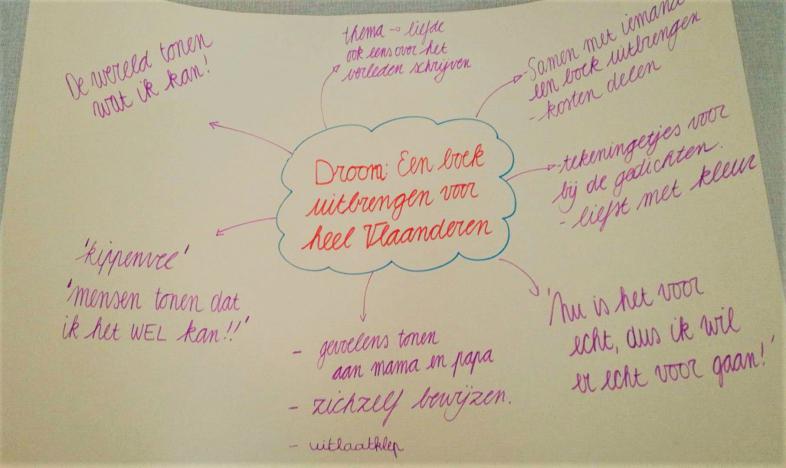 De wereld tonen
wat ik kan!
thema → liefde
ook eens over het
verleden schrijven
- Samen met iemand
een boek uitbrengen
- kosten delen
Droom: Een boek
uitbrengen voor
heel Vlaanderen
- tekeningetjes voor
bij de gedichten.
- liefst met kleur
'kippenvel'
'mensen tonen dat
ik het WEL kan!!'
- gevoelens tonen
aan mama en papa
- zichzelf bewijzen.
- uitlaatklep
'Nu is het voor
echt, dus ik wil
er echt voor gaan!'